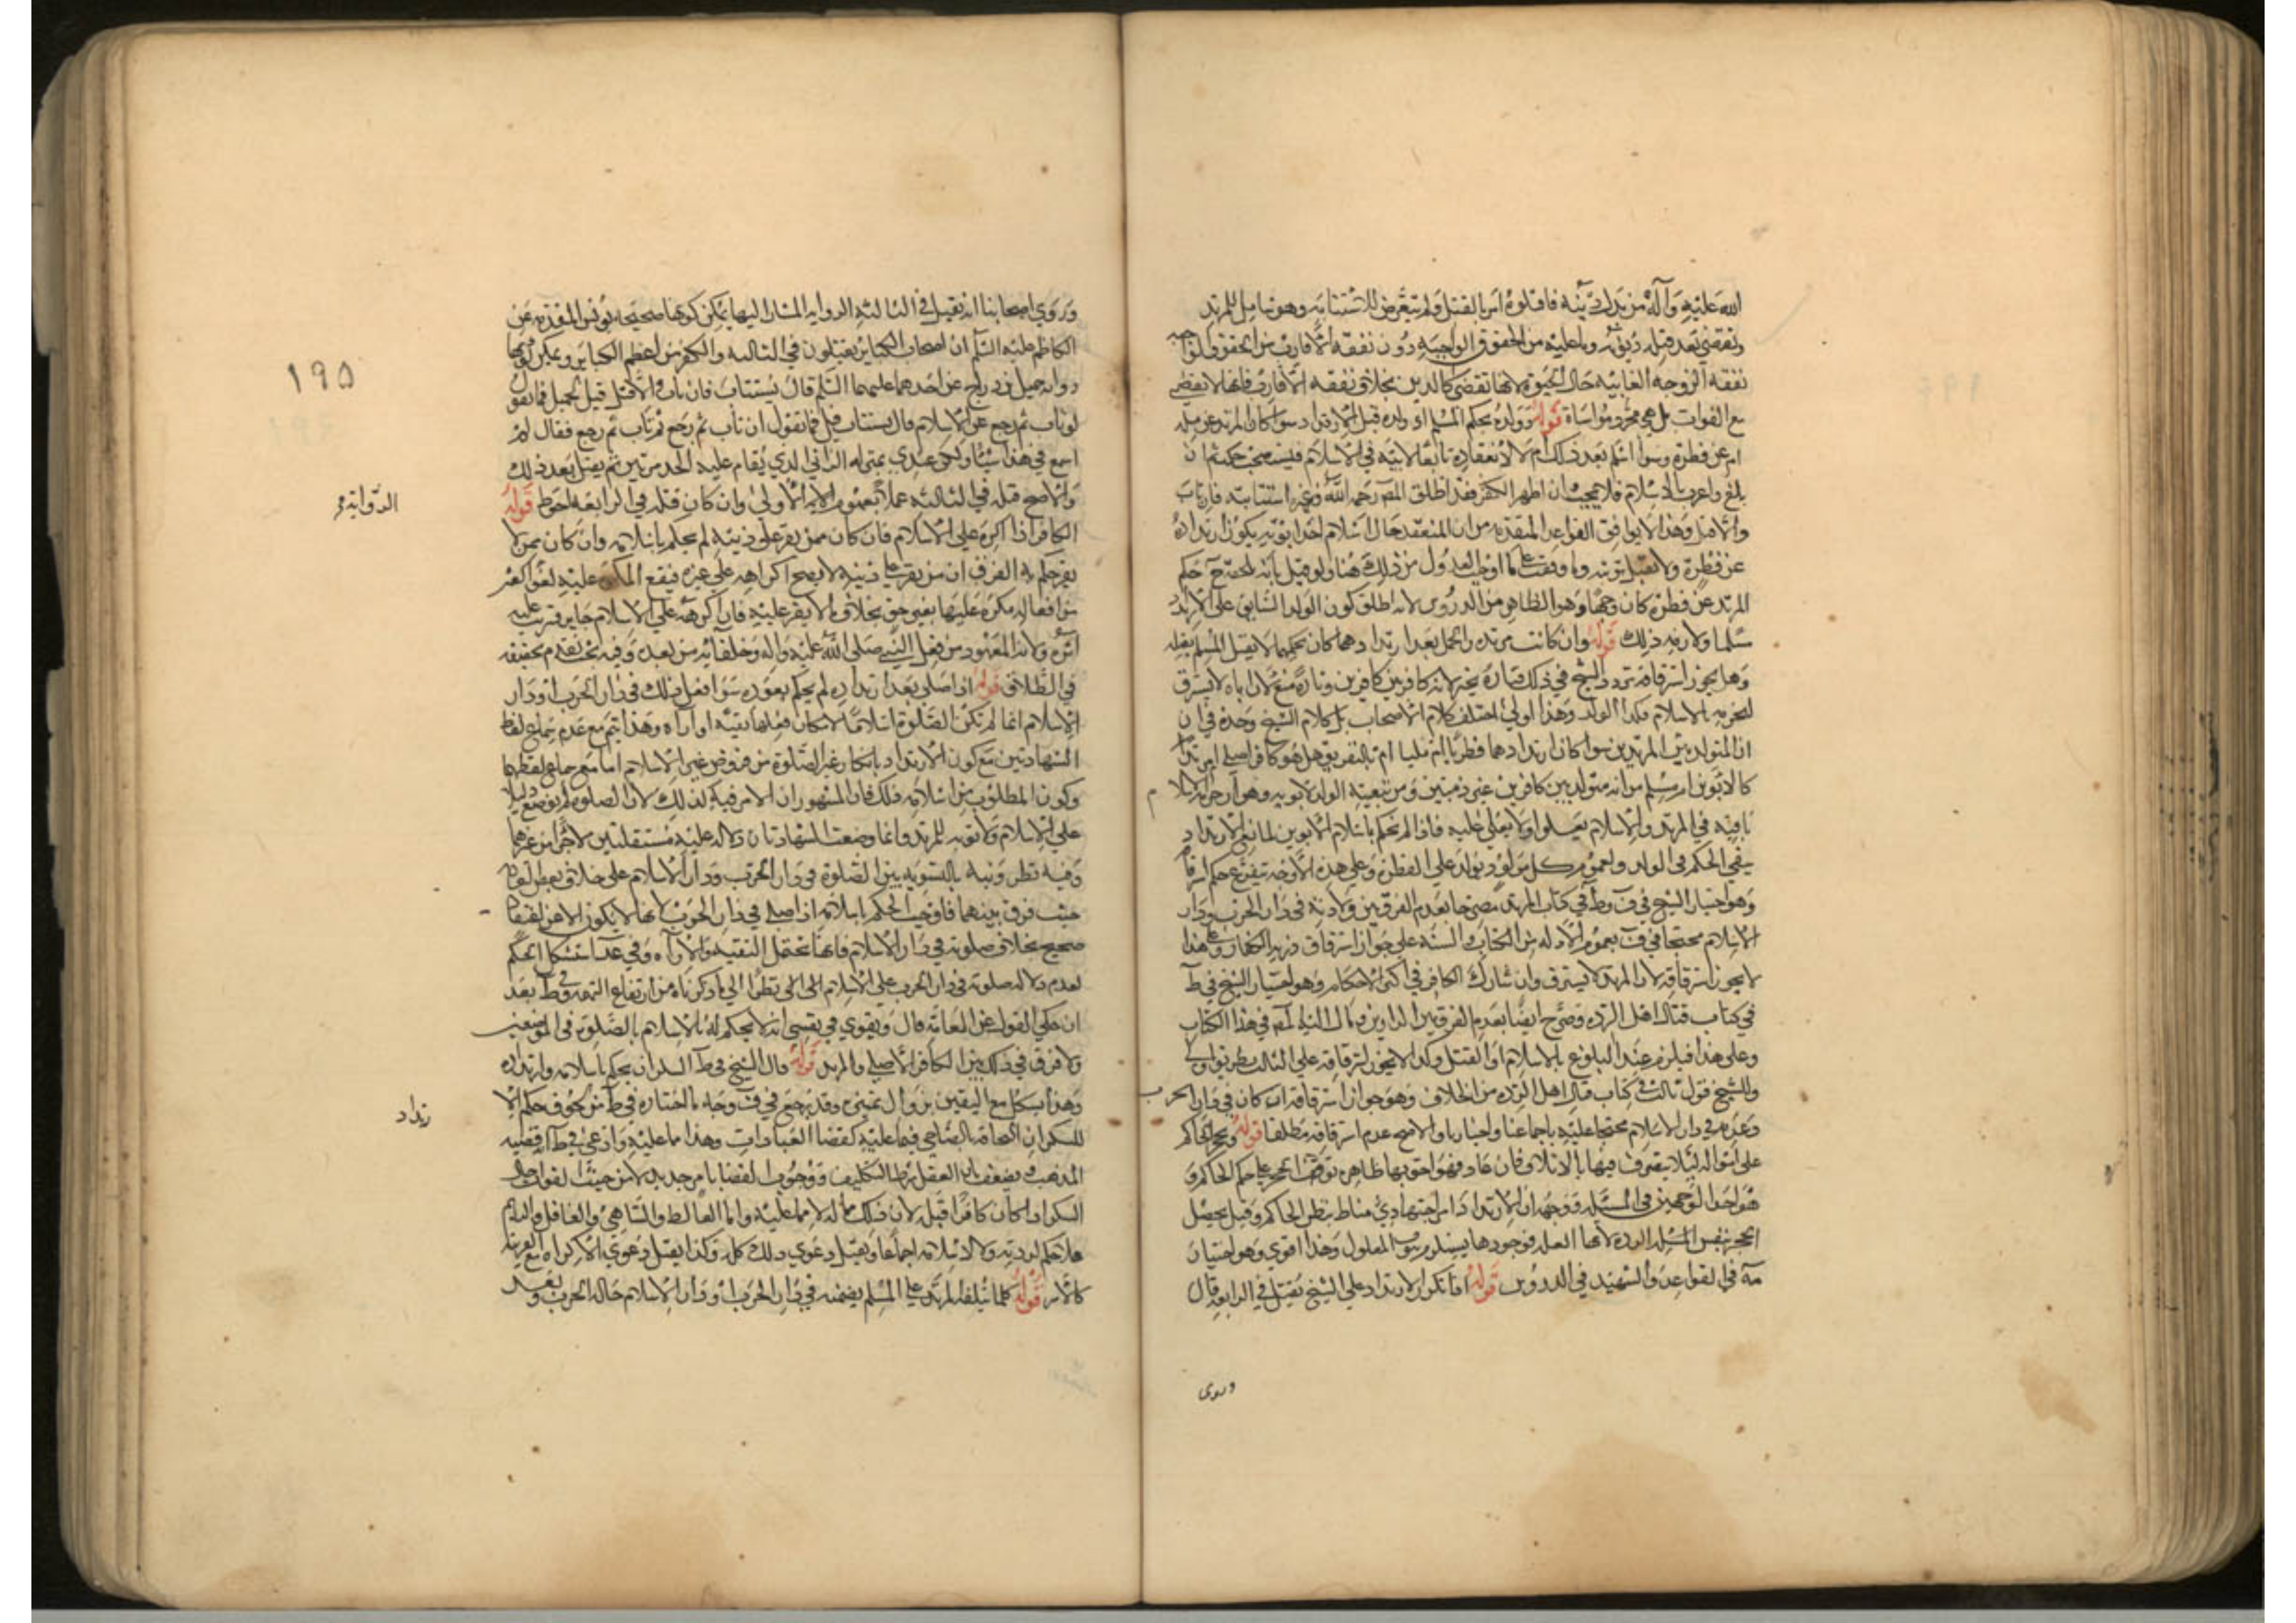 الله عليه وآله من بدل دينه فاقتلوه امر بالقتل ولم يتعرض للاستتابه وهو شامل للمرتد
وتقضى بعد قتله ديونه وما عليه من الحقوق الواجبه دون نفقه الاقارب
نفقه الزوجه الغايبه حال الحيوة لانها تقضى كالدين بخلاف نفقه الاقارب فانها لا تقضى
مع الفوات بل هي مجرد مواساة قوله وولده بحكم المسلم اي ولده قبل الارتداد سوا كان المرتد عن مله
ام عن فطرة وسوا اسلم بعد ذلك ام لا لانعقاده تابعا لابيه في الاسلام فيستصحب حكمه ثم ان
بلغ واعرب بالاسلام فلا بحث وان اظهر الكفر فقد اطلق المص رحمه الله وغيره استتابته فان تاب
والا قتل وهذا لا يوافق القواعد المتقدمه من ان المنعقد حال اسلام احد ابويه يكون ارتداده
عن فطرة ولا تقبل توبته وما وقفت على ما اوجب العدول من ذلك هنا ولو قيل بانه يلحقه حكم
المرتد عن فطرة كان وجها وهو الظاهر من الدروس لانه اطلق كون الولد السابق على الارتداد
مسلما ولازمه ذلك قوله وان كانت مرتده والحمل بعد ارتدادهما كان بحكمهما لا يقتل المسلم بقتله
وهل يجوز استرقاقه تردد الشيخ في ذلك فتارة يجيز لانه كافر بين كافرين وتارة منع لان اباه لا يسترق
لتحرمه بالاسلام فكذا الولد وهذا اولى اختلف كلام الاصحاب بل كلام الشيخ وحده في ان
ان المتولد بين المرتدين سوا كان ارتدادهما فطريا ام مليا ام بالتفريق هل هو كافر اصلي ام مرتد
كالابوين ام مسلم من انه متولد بين كافرين غير ذميين ومن تبعية الولد لابويه وهو ان حرمة الاسلا م
باقيه في المرتد والاسلام يعلو ولا يعلى عليه فاذا لم يحكم باسلام الابوين لمانع الارتداد
بقي الحكم في الولد ولعموم كل مولود يولد على الفطرة وعلى هذه الاوجه يتفرع حكم استرقاقه
وهو اختيار الشيخ في ف وط في كتاب المرتد مصرحا بعدم الفرق بين ولادته في دار الحرب ودار
الاسلام محتجا في ف بعموم الادله من الكتاب والسنه على جواز استرقاق ذريه الكفار وعلى هذا
لا يجوز استرقاقه لان المرتد لا يسترق وان شارك الكافر في اكثر الاحكام وهو اختيار الشيخ في ط
في كتاب قتال اهل الرده وصرح ايضا بعدم الفرق بين الدارين ومال اليه المص في هذا الكتاب
وعلى هذا فيلزم عند البلوغ بالاسلام او القتل وكذا لا يجوز استرقاقه على الثالث بطريق اولى
وللشيخ قول ثالث في كتاب قتال اهل الرده من الخلاف وهو جواز استرقاقه ان كان في دار الحرب
وعدمه في دار الاسلام محتجا عليه باجماعنا واخبارنا والاصح عدم استرقاقه مطلقا قوله ويحجر الحاكم
على امواله لئلا يتصرف فيها بالاتلاف فان عاد فهو احق بها ظاهره توقف الحجر على حكم الحاكم و
هو احد الوجهين في المسئله ووجهه ان الارتداد امر اجتهادي مناط بنظر الحاكم وقيل يحصل
الحجر بنفس الرده لانها العله فوجودها يستلزم ثبوت المعلول وهذا اقوى وهو اختيار
مه في القواعد والشهيد في الدروس قوله اذا تكرر الارتداد على الشيخ يقتل في الرابعه قال
وروى
وروى اصحابنا انه يقتل في الثالثه الروايه المشار اليها يمكن كونها صحيحه يونس المتقدمه عن
الكاظم عليه السلم ان اصحاب الكباير يقتلون في الثالثه والكفر من اعظم الكباير ويمكن كونها
روايه جميل بن دراج عن احدهما عليهما السلم قال يستتاب فان تاب والا قتل قيل لجميل فما تقول
لو تاب ثم رجع عن الاسلام قال يستتاب قيل فما تقول ان تاب ثم رجع ثم تاب ثم رجع فقال لم
اسمع في هذا شيئا ولكن عندي بمنزله الزاني الذي يقام عليه الحد مرتين ثم يقتل بعد ذلك
والاصح قتله في الثالثه عملا بعموم الاولى وان كان قتله في الرابعه احوط قوله
الكافر اذا اكره على الاسلام فان كان ممن يقر على دينه لم يحكم باسلامه وان كان ممن لا
يقر حكم به الفرق ان من يقر على دينه لا يصح اكراهه على غيره فيقع المكره عليه لغوا كغيره
من افعاله مكره عليها بغير حق بخلاف من لا يقر عليه فان اكراهه على الاسلام جايز فترتب عليه
اثره ولانه المعهود من فعل النبي صلى الله عليه واله وخلفائه من بعده وفيه بحث تقدم تحقيقه
في الطلاق قوله اذا صلى بعد ارتداده لم يحكم بعوده سوا فعل ذلك في دار الحرب او دار
الاسلام انما لم تكن الصلوة اسلاما لامكان فعلها تقيه او اراه وهذا يتم مع عدم سماع لفظ
الشهادتين مع كون الارتداد بانكار غير الصلوة من فروض غير الاسلام اما مع سماع لفظهما
وكون المطلوب من اسلامه ذلك فان المشهور ان الامر فيه كذلك لان الصلوة لم توضع دليلا
على الاسلام ولا توبه للمرتد وانما وضعت الشهادتان دلاله عليه مستقلتين لا جزأ من غيرهما
وفيه نظر ونبه بالتسويه بين الصلوة في دار الحرب ودار الاسلام على خلاف بعض العامه
حيث فرق بينهما فاوجب الحكم باسلامه اذا صلى في دار الحرب لانها لا يكون الا عن اعتقاد
صحيح بخلاف صلوته في دار الاسلام فانها تحتمل التقيه والاراه وفي عد استشكل الحكم
لعدم دلاله صلوته في دار الحرب على الاسلام الى نظرا الى ما ذكرناه من ارتفاع التهمه وفي ط بعد
ان حكى القول عن العامه قال ويقوى في نفسي انه لا يحكم له بالاسلام بالصلوة في الموضعين
ولا فرق في ذلك بين الكافر الاصلي والمرتد قوله قال الشيخ في ط السكران يحكم باسلامه وارتداده
وهذا يشكل مع اليقين بزوال تمييزه وقد رجع في ف وجه ما اختاره في ط من لحوق حكم الا
للسكران الحاقه بالصاحي فيما عليه كقضا العبادات وهذا مما عليه وادعى في ط انه قضيه
المذهب ويضعف بان العقل شرط التكليف ووجوب القضا بامر جديد لا من حيث الفوات حال
السكر اذا كان كافرا قبله لان ذلك مما له لا مما عليه واما الغالط والساهي والغافل والنايم
فلا حكم لردته ولا لاسلامه اجماعا ويقبل دعوى ذلك كله وكذا يقبل دعوى الاكراه مع القرينه
كالاسر قوله كلما يتلفه المرتد على المسلم يضمنه في دار الحرب او دار الاسلام حاله الحرب وبعد
١٩٥
الروايه
رتداد